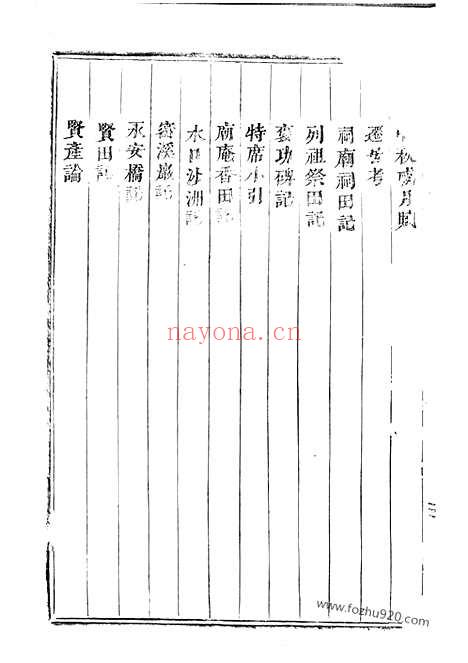 秋 月賦
遷 考
祠廟祠田記
列祖祭田記
裒功碑記
特席小引
廟庵香田記
水口沙洲記
密溪巖記
永安橋記
賢田記
賢產論
nayona.cn
www.fozhu920.com